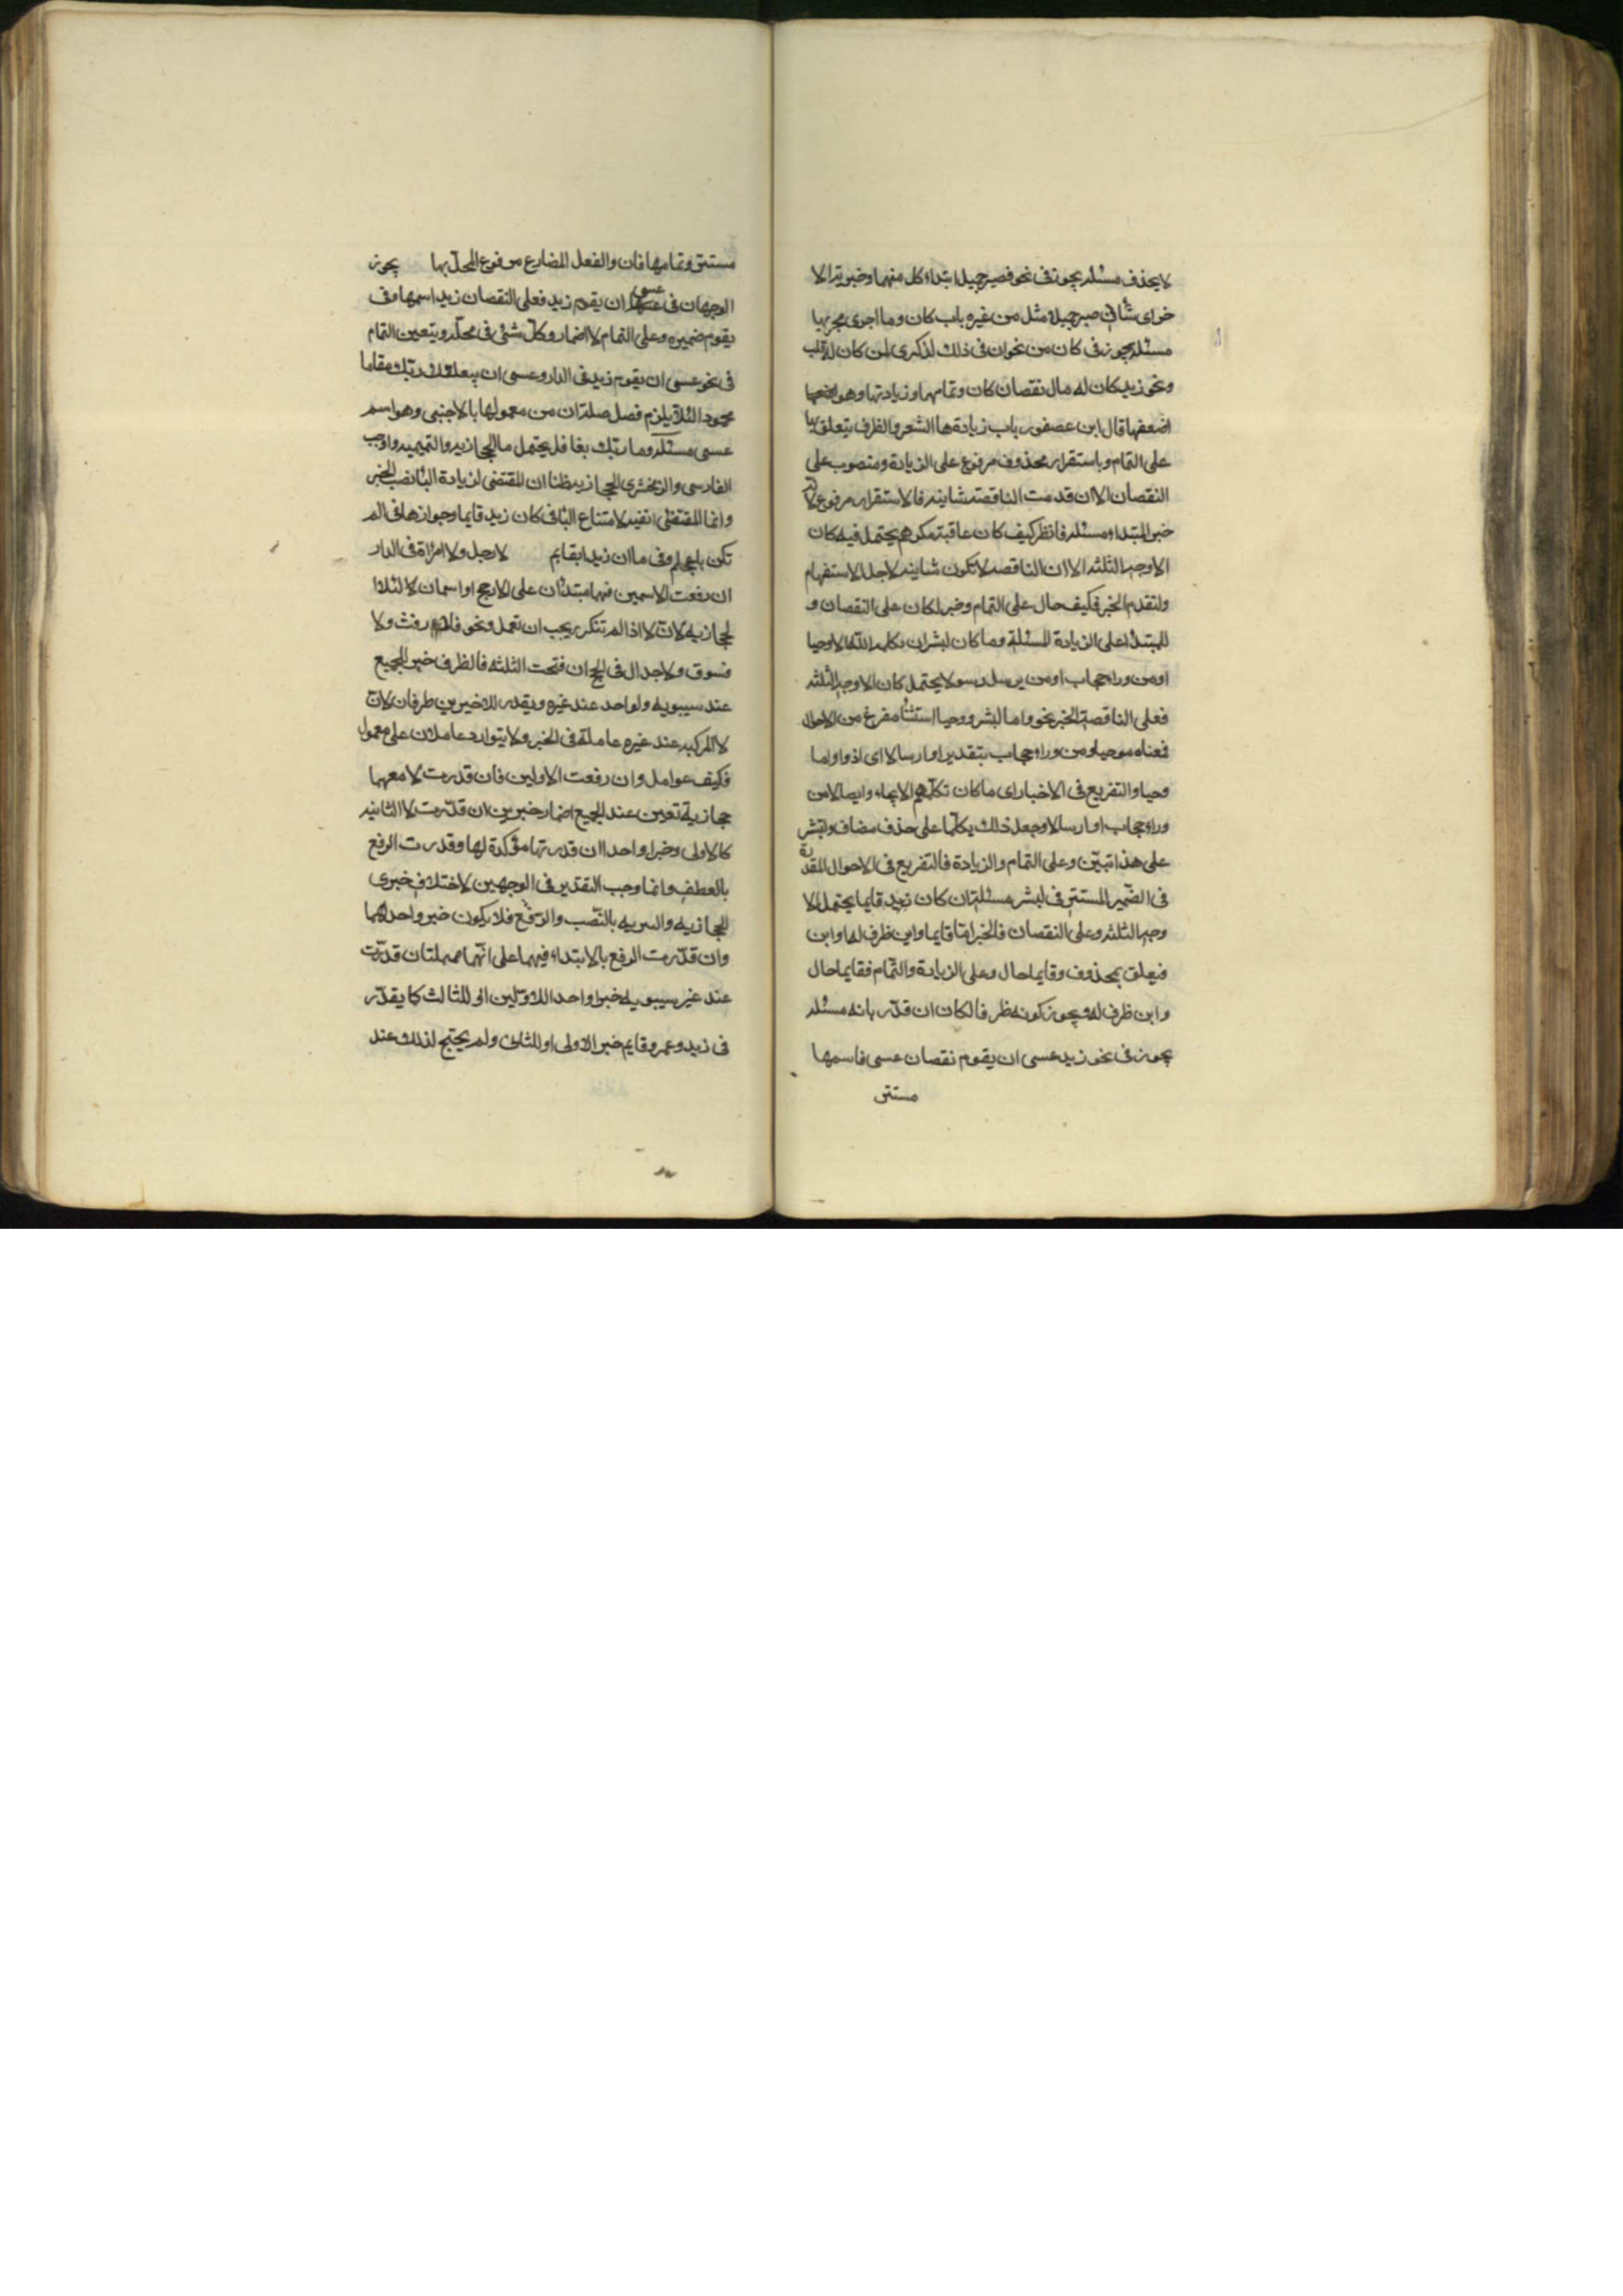 لا يحذف مسئلة يجوز فى نحو فصبر جميل ابتداء كل منهما وخبرية الا
خر اى شأنى صبر جميل او مثل من غيره باب كان وما اجرى مجريها
مسئلة يجوز فى كان من نحو ان فى ذلك لذكرى لمن كان له قلب
ونحو زيد كان له مال نقصان كان وتمامها وزيادتها وهو
اضعفها قال ابن عصفور باب زيادتها الشعر والظرف يتعلق بها
على التمام وباستقرار محذوف مرفوع على الزيادة ومنصوب على
النقصان الا ان قدمت الناقصة شانيه فالاستقرار مرفوع لانه
خبر المبتداء مسئلة فانظر كيف كان عاقبة مكرهم يحتمل فيه كان
الاوجه الثلثه الا ان الناقصه لا تكون شانيه لاجل الاستفهام
ولتقدم الخبر فكيف حال على التمام وخبر لكان على النقصان و
للمبتدا على الزيادة المسئلة وما كان لبشر ان يكلمه الله الا وحيا
او من وراء حجاب او من يرسل رسولا يحتمل كان الاوجه الثلثه
فعلى الناقصة الخبر نحو واما لبشر ووحيا استثنأ مفرغ من الاحوال
فعناه موحيا او من وراء حجاب بتقدير او ارسالا اى اذوا واما
وحيا والتفريع فى الاخبار اى ما كان تكلمهم الا ايحاء وايصالا من
وراء حجاب او ارسالا وجعل ذلك يكلما على حذف مضاف ولبشر
على هذا تبيّن وعلى التمام والزيادة فالتفريع فى الاحوال المقدرة
فى الضّمير المستتر فى لبشر مسئلة ان كان زيد قايما يحتمل الا
وجه الثلثه وعلى النقصان فالخبر امّا قايما واين ظرف له او اين
فيعلق بمحذوف وقايما حال وعلى الزيادة والتّمام فقايما حال
واين ظرف له ويجوز كونه ظرفا لكان ان قدّر بانه مسئلة
يجوز فى نحو زيد عسى ان يقوم نقصان عسى فاسمها
مستتر
مستتر وتمامها فان والفعل المضارع مرفوع المحلّ بها يجوز
الوجهان فى عسى ان يقوم زيد فعلى النقصان زيد اسمها وفى
يقوم ضميره وعلى التمام لا اضمار وكلّ شئى فى محلّه ويتعين التمام
فى نحو عسى ان يقوم زيد فى الدار وعسى ان يبعثك ربّك مقاما
محمودا لئلا يلزم فصل صلة ان من معمولها بالاجنبى وهو اسم
عسى مسئلة وما ربّك بغافل يحتمل ما الحجازيه والتميميه واوجب
الفارسى والزمخشرى الحجازيه ظنا ان المقتضى لزيادة البأ نصب الخبر
وانما المقتضى انفيه لامتناع البأ فى كان زيد قايما وجوازها فى لم
تكن باعجلهم وفى ما ان زيد ابقايم لا رجل ولا امرأة فى الدار
ان رفعت الاسمين فهما مبتدئان على الارجح او اسمان لا لئلا
لحجازيه لانّ لا اذا لم تتكرر يجب ان تعمل ونحو فلا رفث ولا
فسوق ولا جدال فى الحج ان فتحت الثلثه فالظرف خبر الجميع
عند سيبويه ولواحد عند غيره ويقدر للاخيرين ظرفان لانّ
لا المركبه عند غيره عاملة فى الخبر ولا يتوارد عاملان على معمول
فكيف عوامل وان رفعت الاولين فان قدرت لا معهما
حجازية تعين عند الجميع اضمار خبرين ان قدّرت لا الثانيه
كالاولى وخبرا واحدا ان قدرتها مؤكدة لها وقدرت الرفع
بالعطف وانما وجب التقدير فى الوجهين لاختلاف خبرى
الحجازيه والسريه بالنّصب والرّفع فلا يكون خبر واحد لهما
وان قدّرت الرفع بالابتداء فيهما على انّهما مهملتان قدّرت
عند غير سيبويه خبرا واحدا للاوّلين او للثالث كما يقدّر
فى زيد وعمرو قايم خبر الاولى او للثانى ولم يحتج لذلك عند